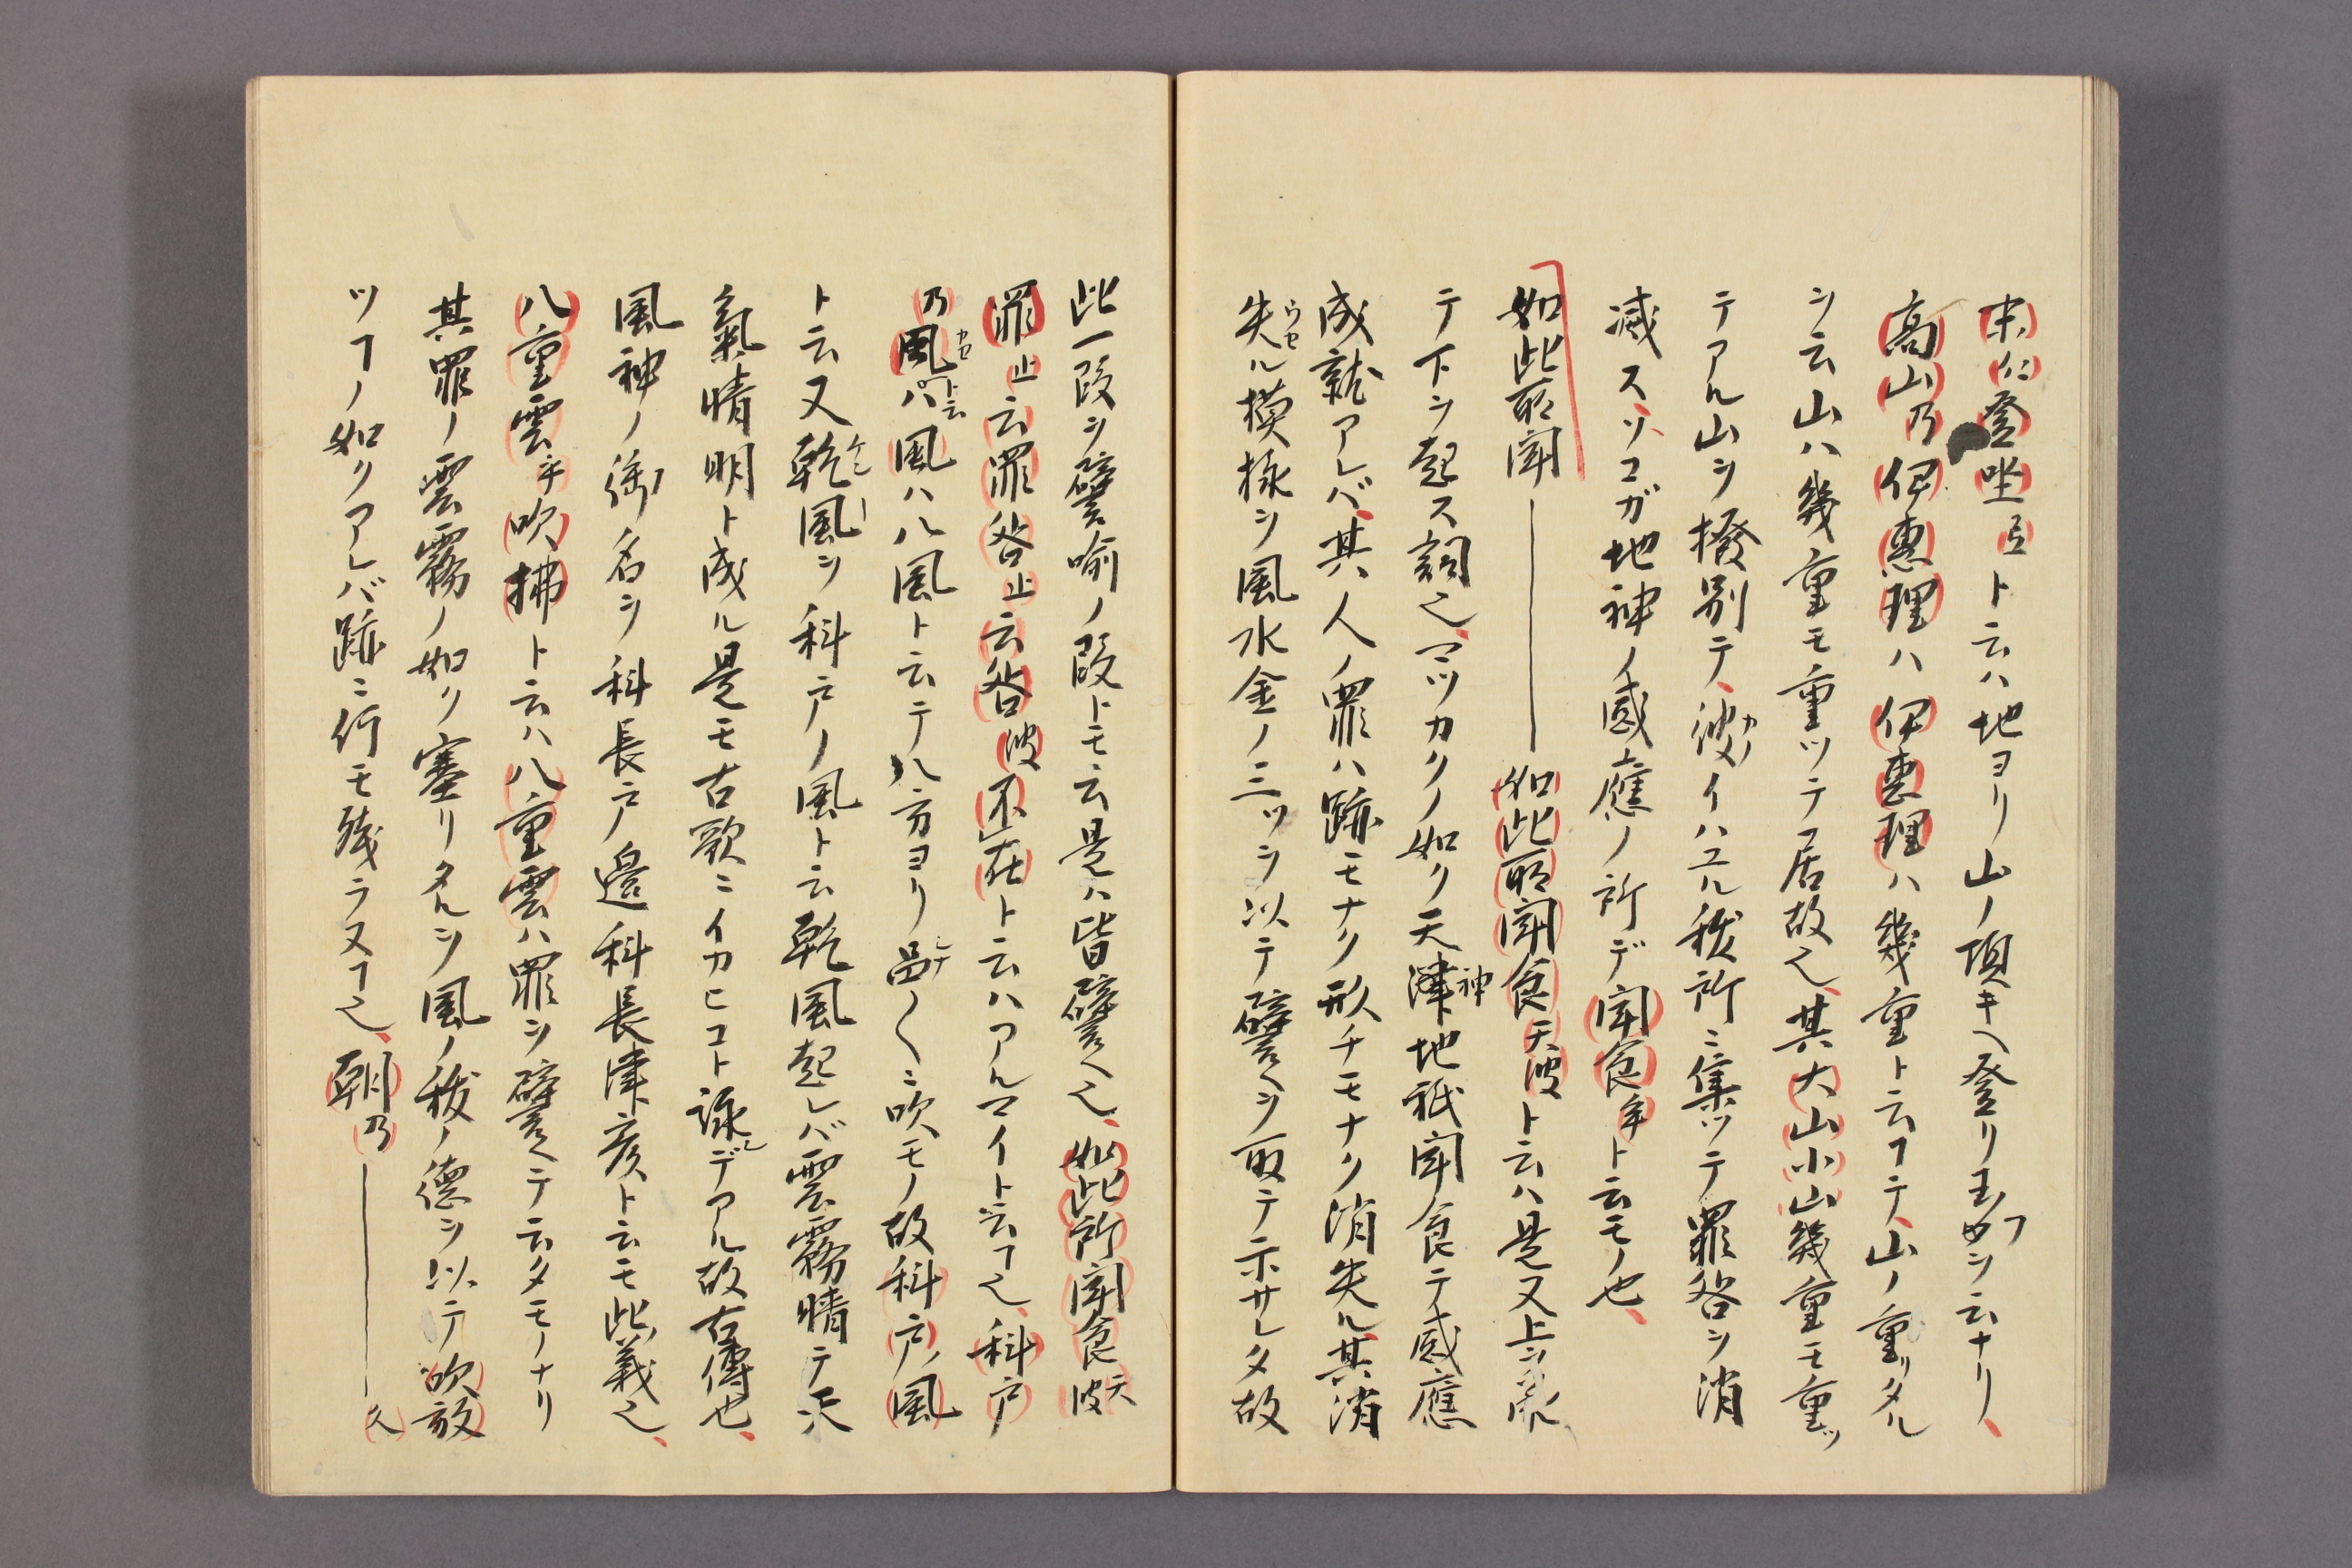 末仁登坐弖ト云ハ地ヨリ山ノ頂キヘ登リ玉フヿヲ云ナリ、
高山乃伊惠理ハ伊惠理ハ幾重ト云フテ、山ノ重リタル
ヲ云山ハ幾重モ重ツテ居故之、其大山小山幾重モ重ツ
テアル山ヲ撥別テ、彼イハユル秡所ニ集ツテ罪咎ヲ消
滅ス、ソコガ地神ノ感應ノ所デ聞食年ト云モノ也、
如此聞　如此所聞食天波ト云ハ是又上ヲ承
テ下ヲ起ス詞之、マツカクノ如ク天津神地祇聞食テ感應
成就アレバ、其人ノ罪ハ跡モナク形チモナク消失ル、其消
失ル模様ヲ風水金ノ三ツヲ以テ譬ヘヲ取テ示サレタ故
此一段ヲ譬喩ノ段トモ云是ハ皆譬ヘ之、如此所聞食天波
罪止云罪咎止云咎波不在ト云ハアルマイト云フヿ之、科戸
乃風ハ風ハ八風ト云テ八方ヨリ品〱ニ吹モノ故科戸ノ風
ト云又乾風ヲ科戸ノ風ト云乾風起レバ雲霧晴テ天
氣晴明ト成ル是モ古歌ニイカヒコト詠デアル故右傳也、
風神ノ御名ヲ科長戸邊科長津彦ト云モ此義之、
八重雲乎吹拂ト云ハ八重雲ハ罪ヲ譬ヘテ云タモノナリ
其罪ノ雲霧ノ如ク塞リタルヲ風ノ秡ノ德ヲ以テ吹放
ツヿノ如クアレバ跡ニ行モ殘ラヌヿ之、朝乃　久